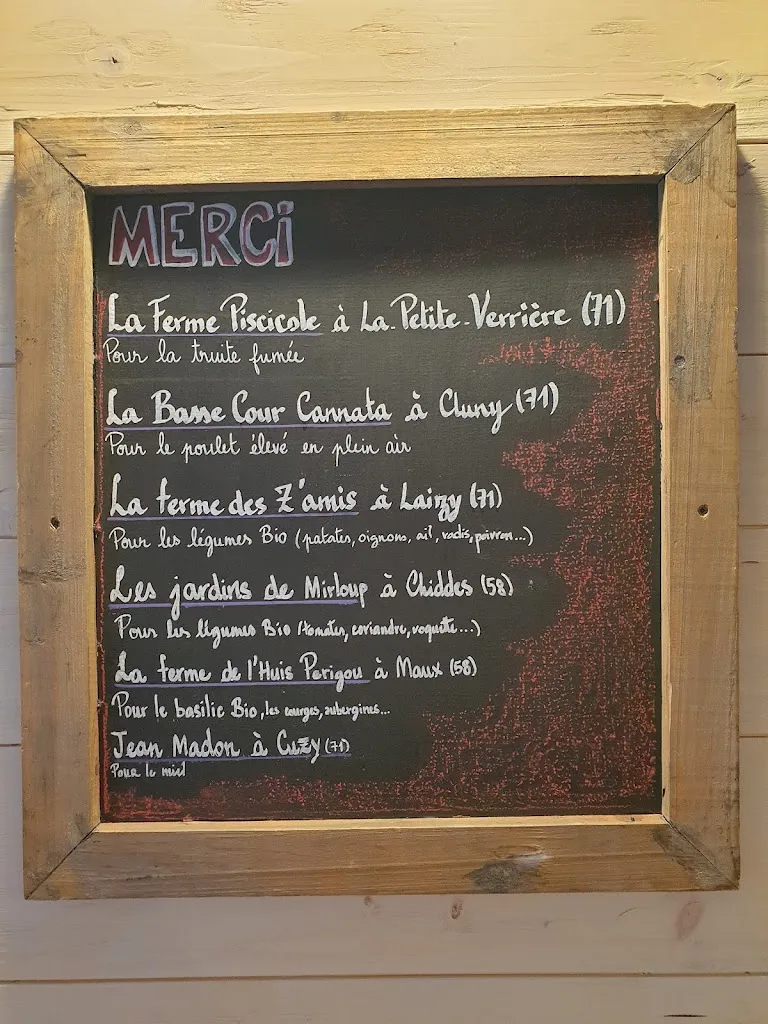 MERCi
La Ferme Piscicole à La-Petite-Verrière (71)
Pour la truite fumée
La Basse Cour Cannata à Cluny (71)
Pour le poulet élevé en plein air
La ferme des Z'amis à Laizy (71)
Pour les légumes Bio (patates, oignons, ail, radis, poivron...)
Les jardins de Mirloup à Chiddes (58)
Pour les légumes Bio (tomates, coriandre, roquette...)
La ferme de l'Huis Perigou à Maux (58)
Pour le basilic Bio, les courges, aubergines...
Jean Madon à Cuzy (71)
Pour le miel